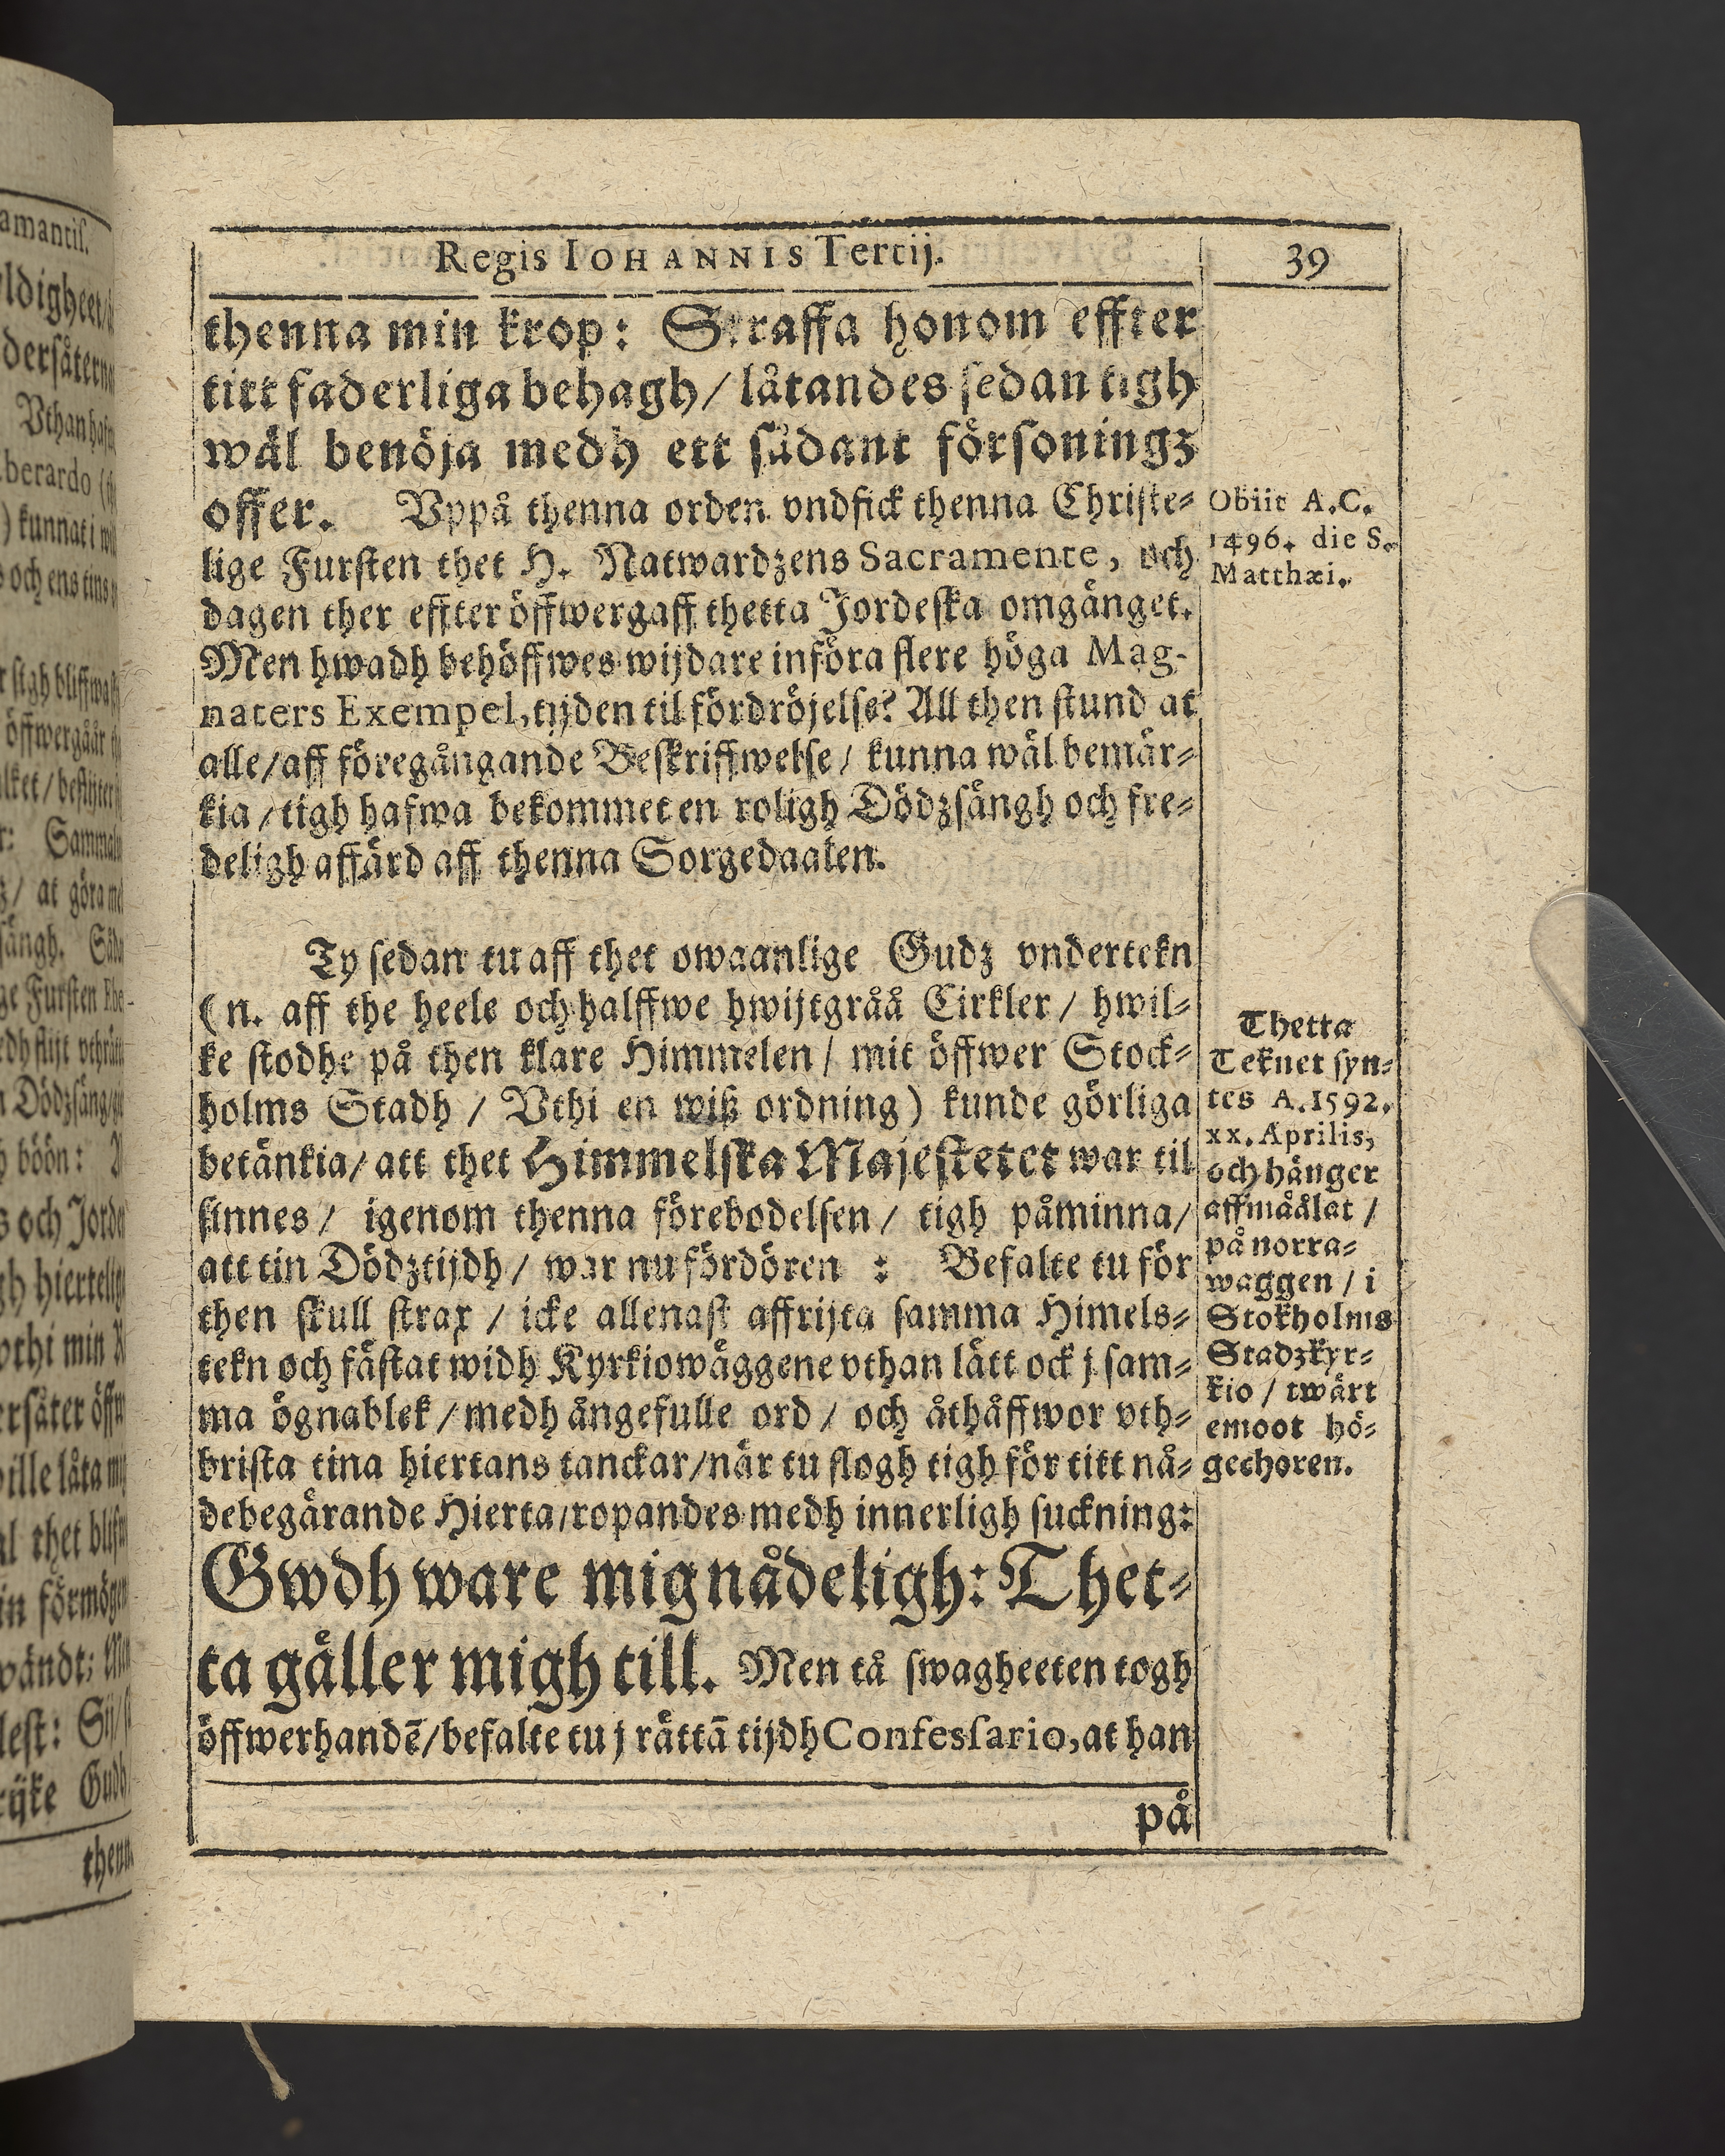 amantiſ.
ldigheet
derſåtern
Vthan
berardo
) kunnat i
och ens tins
ſigh bliffwa
öffwergåår
Sammal
at göra
ſängh.
ge Furſten
Dödzſäng
böön:
s och Jorde
gh hiertelig
vthi min
erſåter öff
wille låta
al thet
in förmög
wändt:
leſt:
rijke Gudh
then
Regis IOHANNIS Tertij.
39
thenna min krop: Straffa honom effter
titt faderliga behagh/ låtandes ſedan tigh
wäl benöja medh ett ſådant förſoningz
offer. Vppå thenna orden vndfick thenna Chriſte⸗
lige Furſten thet H. Natwardzens Sacramente, och
dagen ther effter öffwergaff thetta Jordeſka omgänget.
Men hwadh behöffwes wijdare införa flere höga Mag-
naters Exempel, tijden til fördröjelſe? All then ſtund at
alle/aff föregångande Beſkriffwelſe/ kunna wäl bemär⸗
kia/tigh hafwa bekommet en roligh Dödzſängh och fre⸗
deligh affärd aff thenna Sorgedaalen.
Obiit A.C.
1496. die S.
Matthæi.
Ty ſedan tu aff thet owaanlige Gudz vndertekn
(n. aff the heele och halffwe hwijtgråå Cirkler/ hwil⸗
ke ſtodhe på then klare Himmelen/ mit öffwer Stock⸗
holms Stadh / Vthi en wiß ordning) kunde görliga
betänkia/ att thet Himmelſka Majeſtetet war til
ſinnes/ igenom thenna förebodelſen/ tigh påminna/
att tin Dödztijdh/ war nu fördören : Befalte tu för
then ſkull ſtrax / icke allenaſt affrijta ſamma Himels⸗
tekn och fäſtat widh Kyrkiowäggene vthan lätt ock j ſam⸗
ma ögnablek/medh ångefulle ord/ och åthåffwor vth⸗
briſta tina hiertans tanckar/när tu ſlogh tigh för titt nå⸗
debegärande Hierta/ropandes medh innerligh ſuckning:
Gwdh ware mig nådeligh: Thet⸗
ta gäller migh till. Men tå ſwagheeten togh
öffwerhandē/befalte tu j rättā tijdh Confesſario, at han
Thetta
Teknet ſyn⸗
tes A. 1592.
xx. Aprilis,
och hänger
affmåålat /
på norra⸗
waggen / i
Stokholms
Stadzkyr⸗
kio / twärt
emoot hö⸗
gechoren.
på